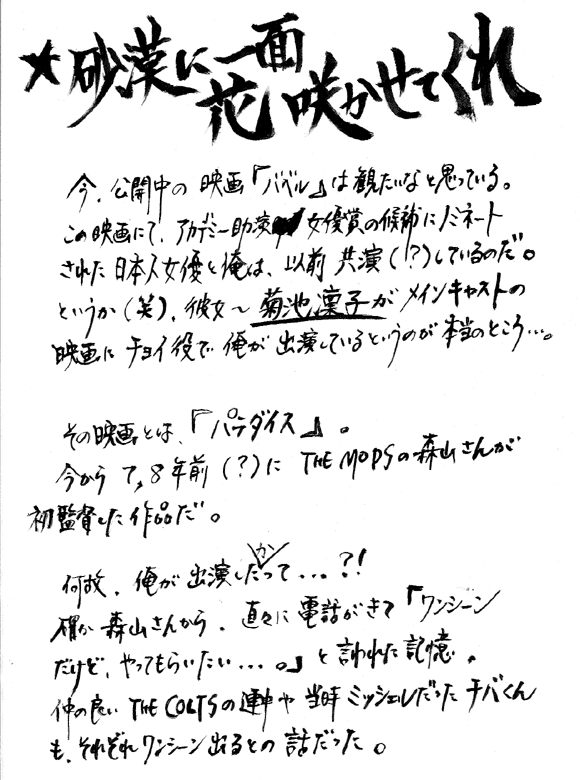 ★砂漠に一面
花咲かせてくれ
今、公開中の映画「バベル」は観たいなと思っている。
この映画にて、アカデミー助演女優賞の候補にノミネート
された日本人女優と俺は、以前共演(!?)しているのだ。
というか(笑)、彼女〜菊池凛子がメインキャストの
映画にチョイ役で俺が出演しているというのが本当のところ…。
その映画とは、『パラダイス』。
今から7,8年前(?)にTHE MODSの森山さんが
初監督した作品だ。
何故、俺が出演したかって…?!
確か森山さんから、直々に電話がきて「ワンシーン
だけど、やってもらいたい…。」と言われた記憶。
仲の良いTHE COLTSの連中や当時ミッシェルだったチバくん
も、それぞれワンシーン出るとの話だった。